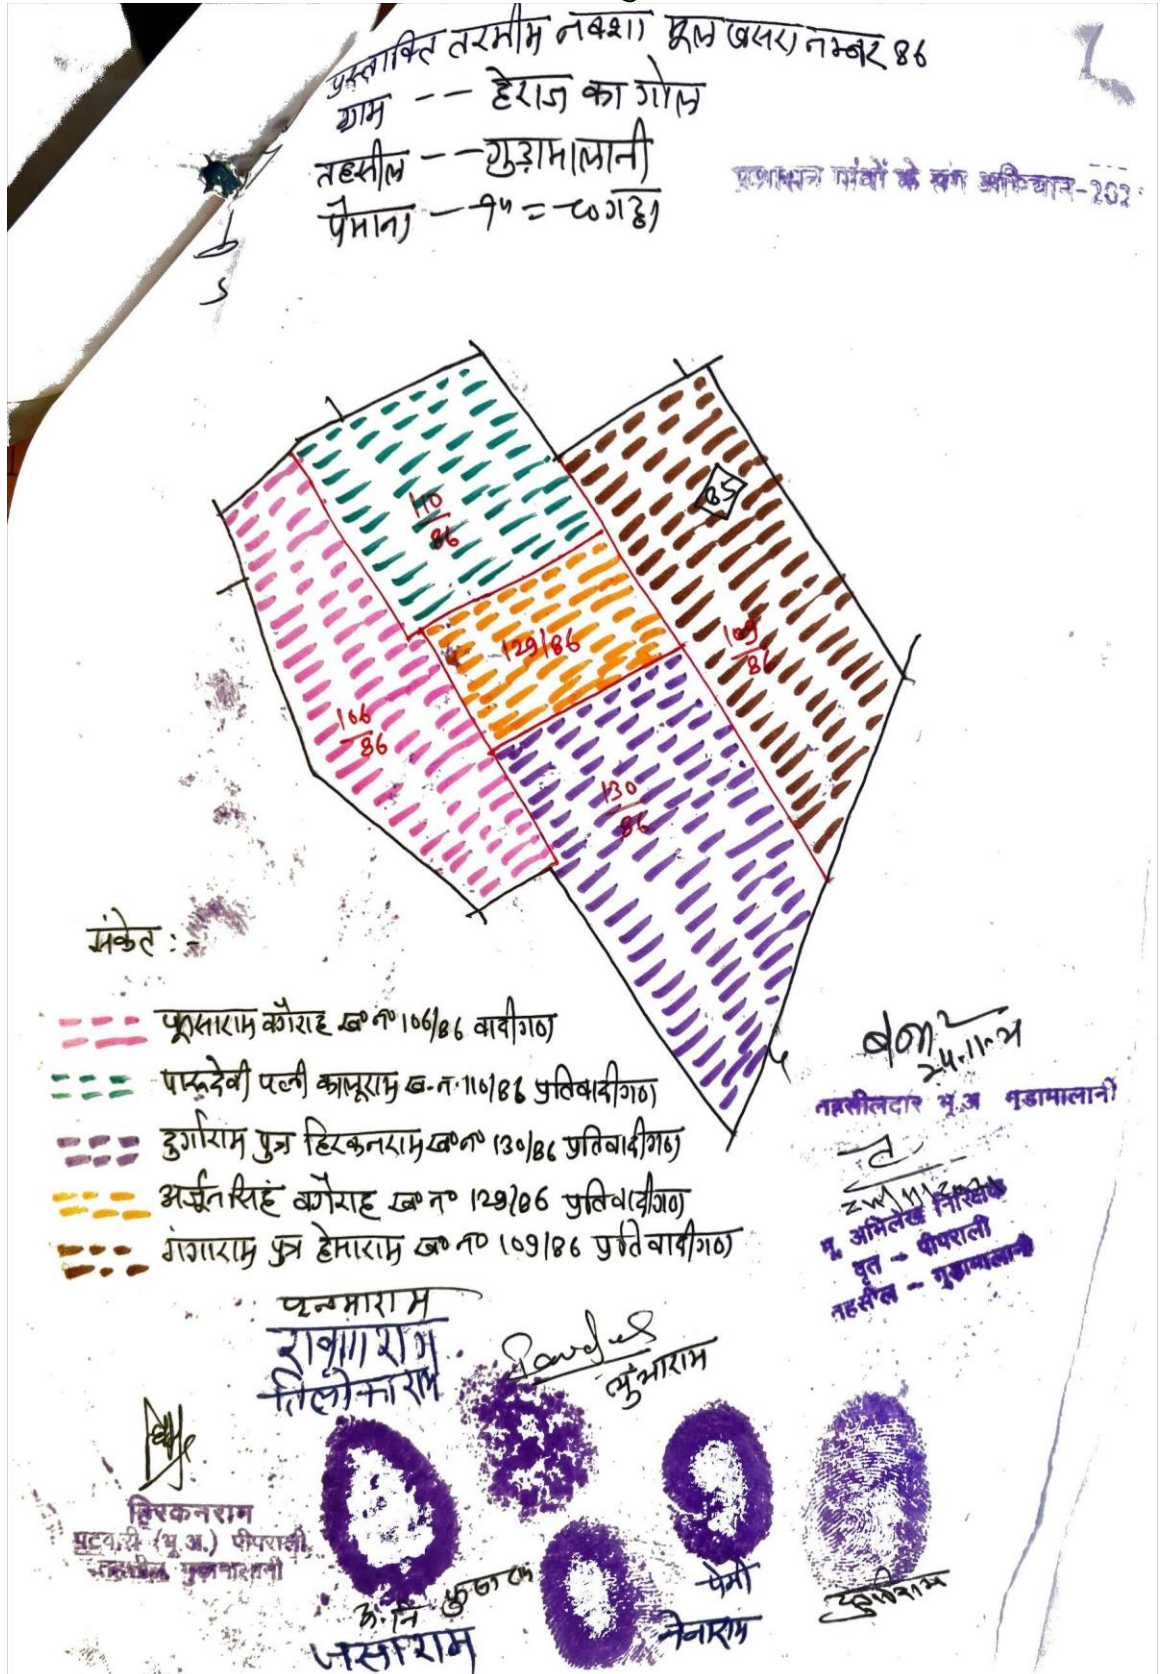 प्रस्तावित तरमीम नक्शा मूल खसरा नम्बर 86
ग्राम -- हेराज का गोल
तहसील -- गुड़ामालानी
पैमाना --
प्रशासन गांवों के संग अभियान-202
110/86
85
129/86
109/86
106/86
130/86
संकेत :-
वगैराह ख॰ न॰ 106/86 वादीगण
पारूदेवी पत्नी कालूराम ख. न. 110/86 प्रतिवादीगण
दुर्गाराम पुत्र हिरकनराम ख॰ न॰ 130/86 प्रतिवादीगण
अर्जुन सिंह वगैराह ख॰ न॰ 129/86 प्रतिवादीगण
गंगाराम पुत्र हेमाराम ख॰ न॰ 109/86 प्रतिवादीगण
तहसीलदार भू.अ गुडामालानी
भू. अभिलेख निरिक्षक
वृत - पीपराली
तहसील - गुडामालानी
पुनमाराम
तिलोकाराम
हिरकनराम
पटवारी (भू.अ.) पीपराली
पेमी
जसाराम